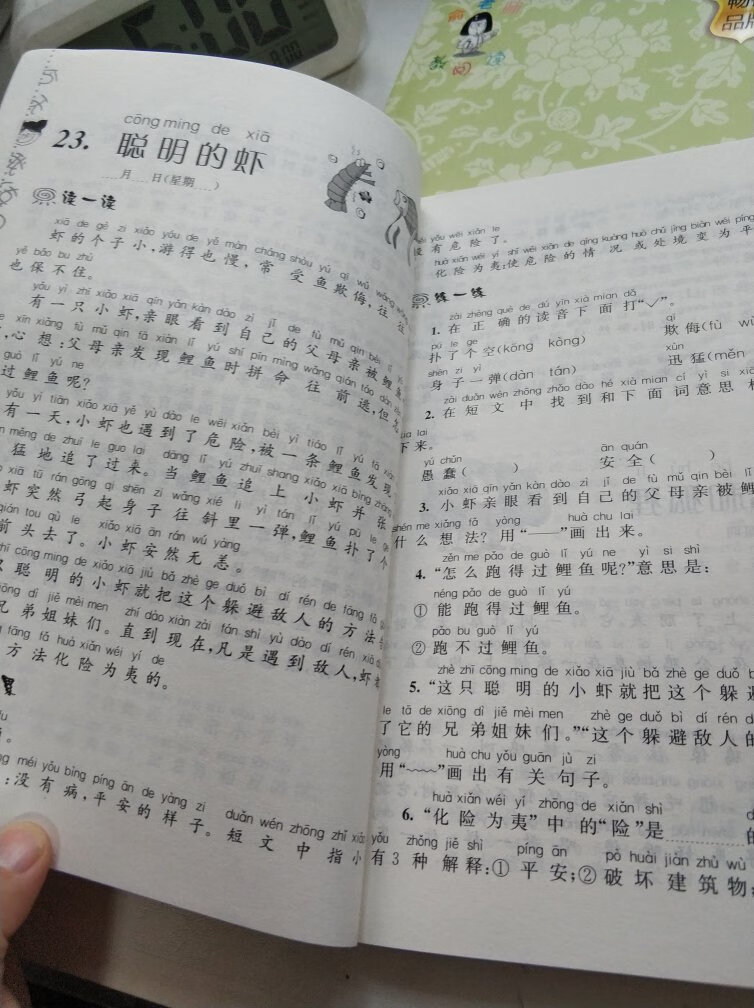 cōng ming de xiā
23. 聪明的虾
月 日(星期 )
读一读
xiā de gè zi xiǎo yóu de yě màn cháng shòu yú qī wǔ wǎng wǎng
虾的个子小,游得也慢,常受鱼欺侮,往往
yě bǎo bu zhù
也保不住。
yǒu yì zhī xiǎo xiā qīn yǎn kàn dào zì jǐ de fù mǔ qin bèi lǐ yú
有一只小虾,亲眼看到自己的父母亲被鲤鱼
xīn xiǎng fù mǔ qin fā xiàn lǐ yú shí pīn mìng wǎng qián táo dàn zěn
,心想:父母亲发现鲤鱼时拼命往前逃,但怎
guò lǐ yú ne
过鲤鱼呢?
yǒu yì tiān xiǎo xiā yě yù dào le wēi xiǎn bèi yì tiáo lǐ yú fā xiàn
有一天,小虾也遇到了危险,被一条鲤鱼发现
měng de zhuī le guo lai dāng lǐ yú zhuī shang xiǎo xiā bìng zhāng
猛地追了过来。当鲤鱼追上小虾并张
xiā tū rán gōng qi shēn zi wǎng xié li yì tán lǐ yú pū le gè
虾突然弓起身子往斜里一弹,鲤鱼扑了个
qián tou qù le xiǎo xiā ān rán wú yàng
前头去了。小虾安然无恙。
zhī cōng míng de xiǎo xiā jiù bǎ zhè ge duǒ bì dí rén de fāng fǎ
只聪明的小虾就把这个躲避敌人的方法
xiōng dì jiě mèi men zhí dào xiàn zài fán shì yù dào dí rén xiā
兄弟姐妹们。直到现在,凡是遇到敌人,虾
fāng fǎ huà xiǎn wéi yí de
方法化险为夷的。
méi yǒu bìng píng ān de yàng zi duǎn wén zhōng zhǐ xiǎo
:没有病,平安的样子。短文中指小
méi yǒu wēi xiǎn le
没有危险了。
huà xiǎn wéi yí shǐ wēi xiǎn de qíng kuàng huò chǔ jìng biàn wéi píng
化险为夷:使危险的情况或处境变为平
练一练
zài zhèng què de dú yīn xià mian dǎ
1. 在正确的读音下面打“✓”。
pū le ge qī
扑了个空(kōng kòng) 欺侮(fǔ wǔ
shēn zi yì xùn
身子一弹(dàn tán) 迅猛(měn
zài duǎn wén zhōng zhǎo dào hé xià mian cí yì si xiāng
2. 在短文中找到和下面词意思相
xia lai
下来。
yú chǔn ān quán
愚蠢( ) 安全( )
xiǎo xiā qīn yǎn kàn dào zì jǐ de fù mǔ qin bèi lǐ
3. 小虾亲眼看到自己的父母亲被鲤
shén me xiǎng fǎ yòng huà chu lai
什么想法?用“——”画出来。
zěn me pǎo de guò lǐ yú ne yì si shì
4. “怎么跑得过鲤鱼呢?”意思是:
néng pǎo de guò lǐ yú
①能跑得过鲤鱼。
pǎo bu guò lǐ yú
②跑不过鲤鱼。
zhè zhī cōng míng de xiǎo xiā jiù bǎ zhè ge duǒ b
5. “这只聪明的小虾就把这个躲避
le tā de xiōng dì jiě mèi men zhè ge duǒ bì dí rén d
了它的兄弟姐妹们。”“这个躲避敌人的
yòng huà chu yǒu guān jù zi
用“﹏﹏”画出有关句子。
huà xiǎn wéi yí zhōng de xiǎn shì
6. “化险为夷”中的“险”是 的
yǒu zhǒng jiě shì píng ān pò huài jiàn zhù wù
有3种解释:①平安;②破坏建筑物;